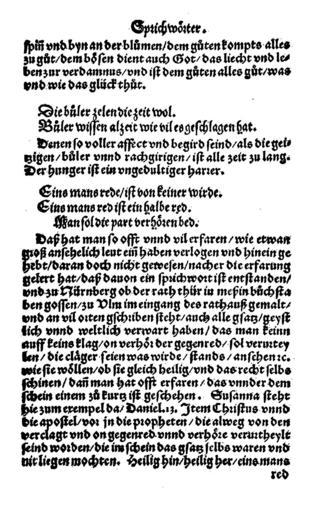 Sprichwörter.
spiñ vnd byn an der blůmen/dem gůten kompts alles
zů gůt/dem bösen dient auch Got/das liecht vnd le-
ben zur verdamnus/vnd ist dem gůten alles gůt/was
vnd wie das glück thůt.
Die bůler zelen die zeit wol.
Bůler wissen alzeit wie vil es geschlagen hat.
Denen so voller affect vnd begird seind/als die gei-
tzigen/bůler vnnd rachgirigen/ist alle zeit zu lang.
Der hunger ist ein vngedultiger harrer.
Eins mans rede/ist von keiner wirde.
Eins mans red ist ein halbe red.
Man sol die part verhören bed.
Daß hat man so offt vnnd vil erfaren/wie etwan
groß ansehelich leut eiñ haben verlogen vnd hinein ge
hebt/daran doch nicht gewesen/nacher die erfarung
gelert hat/daß dauon ein sprichwort ist entstanden/
vnd zů Nürnberg ob der rath thür in meßin bůchsta
ben gossen/zu Vlm im eingang des rathauß gemalt/
vnd an vil orten gschriben steht/auch alle gsatz/geyst
lich vnnd weltlich verwart haben/das man keinn
auff keins klag/on verhör der gegenred/sol vervrtey
len/die cläger seien was wirde/stands/ansehen ꝛc.
wie sie wöllen/ob sie gleich heilig/vnd das recht selbs
schinen/dañ man hat offt erfaren/das vnnder dem
schein einem zů kurtz ist geschehen. Susanna steht
hie zum exempel da/Daniel.13. Item Christus vnnd
die apostel/vor jn die propheten/die alweg von den
verclagt vnd on gegenred vnnd verhöre verurtheylt
seind worden/die in schein das gsatz selbs waren vnd
nit liegen mochten. Heilig hin/heilig her/eins mans
red